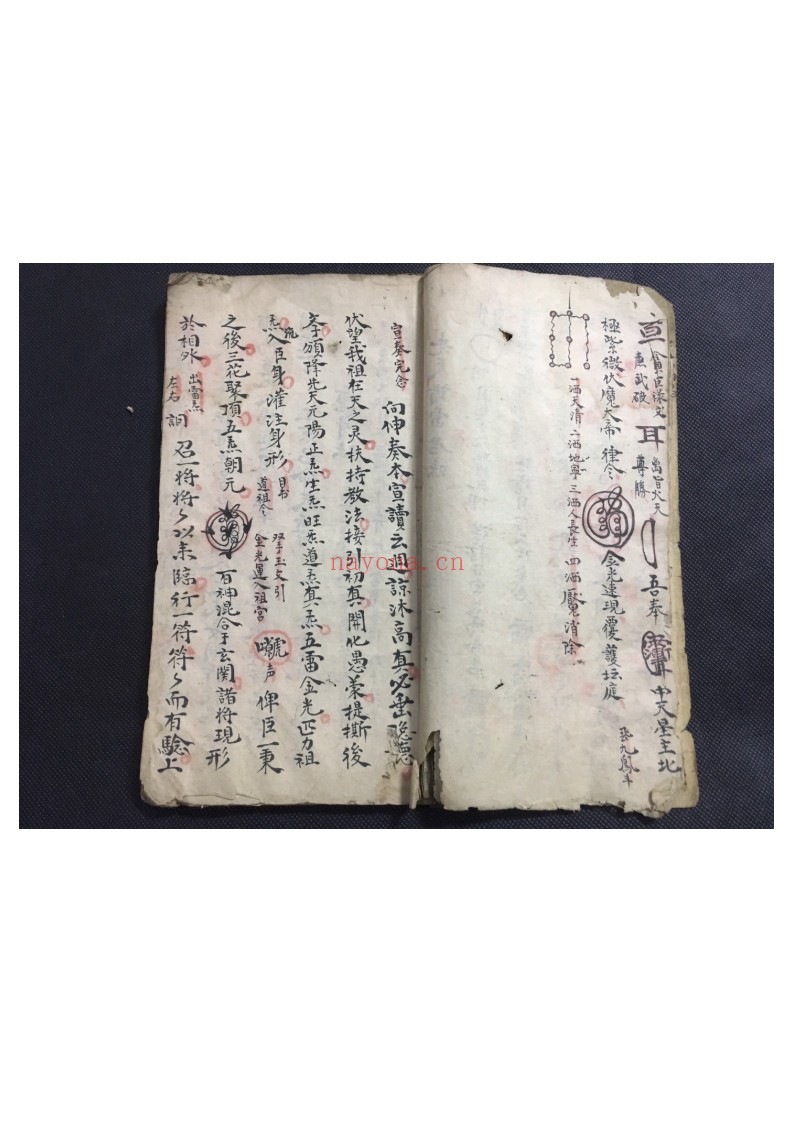 貪巨祿文
廉武破
耳
尊勝
吾奉
中天星主北
極紫微伏魔大帝律令
金光速現覆護坛庭
一洒天清二洒地寧三洒人長生四洒魘消除
宣奏完念
向伸奏本宣讀云週諒沐高真必垂隐
伏望我祖在天之灵扶持教法接引初真開化愚蒙提撕後
李頒降先天元陽正炁生炁旺炁道炁真炁五雷金光匹力祖
炁入臣身灌注身形
道祖令
金光運入祖宮
声
俾臣一秉
之後三花聚頂五炁朝元
百神混合于玄関諸將現形
於相外
出雷炁
左右
召一將將〻以来臨行一符符〻而有驗上
nayona.cn